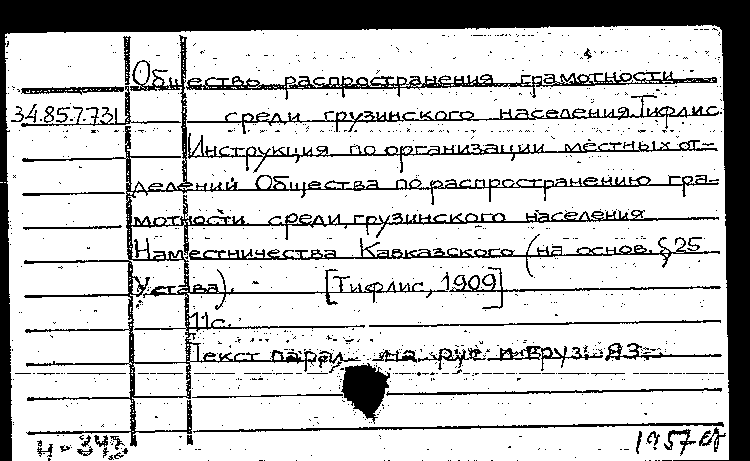 Общество распространения грамотности
34.857.731 среди грузинского населения. Тифлис
Инструкция по организации местных от-
делений Общества по распространению гра-
мотности среди грузинского населения
Наместничества Кавказского (на основ. § 25
Устава). [Тифлис, 1909]
11с.
Текст парал. на рус. и груз. яз.
Ч-343 1957